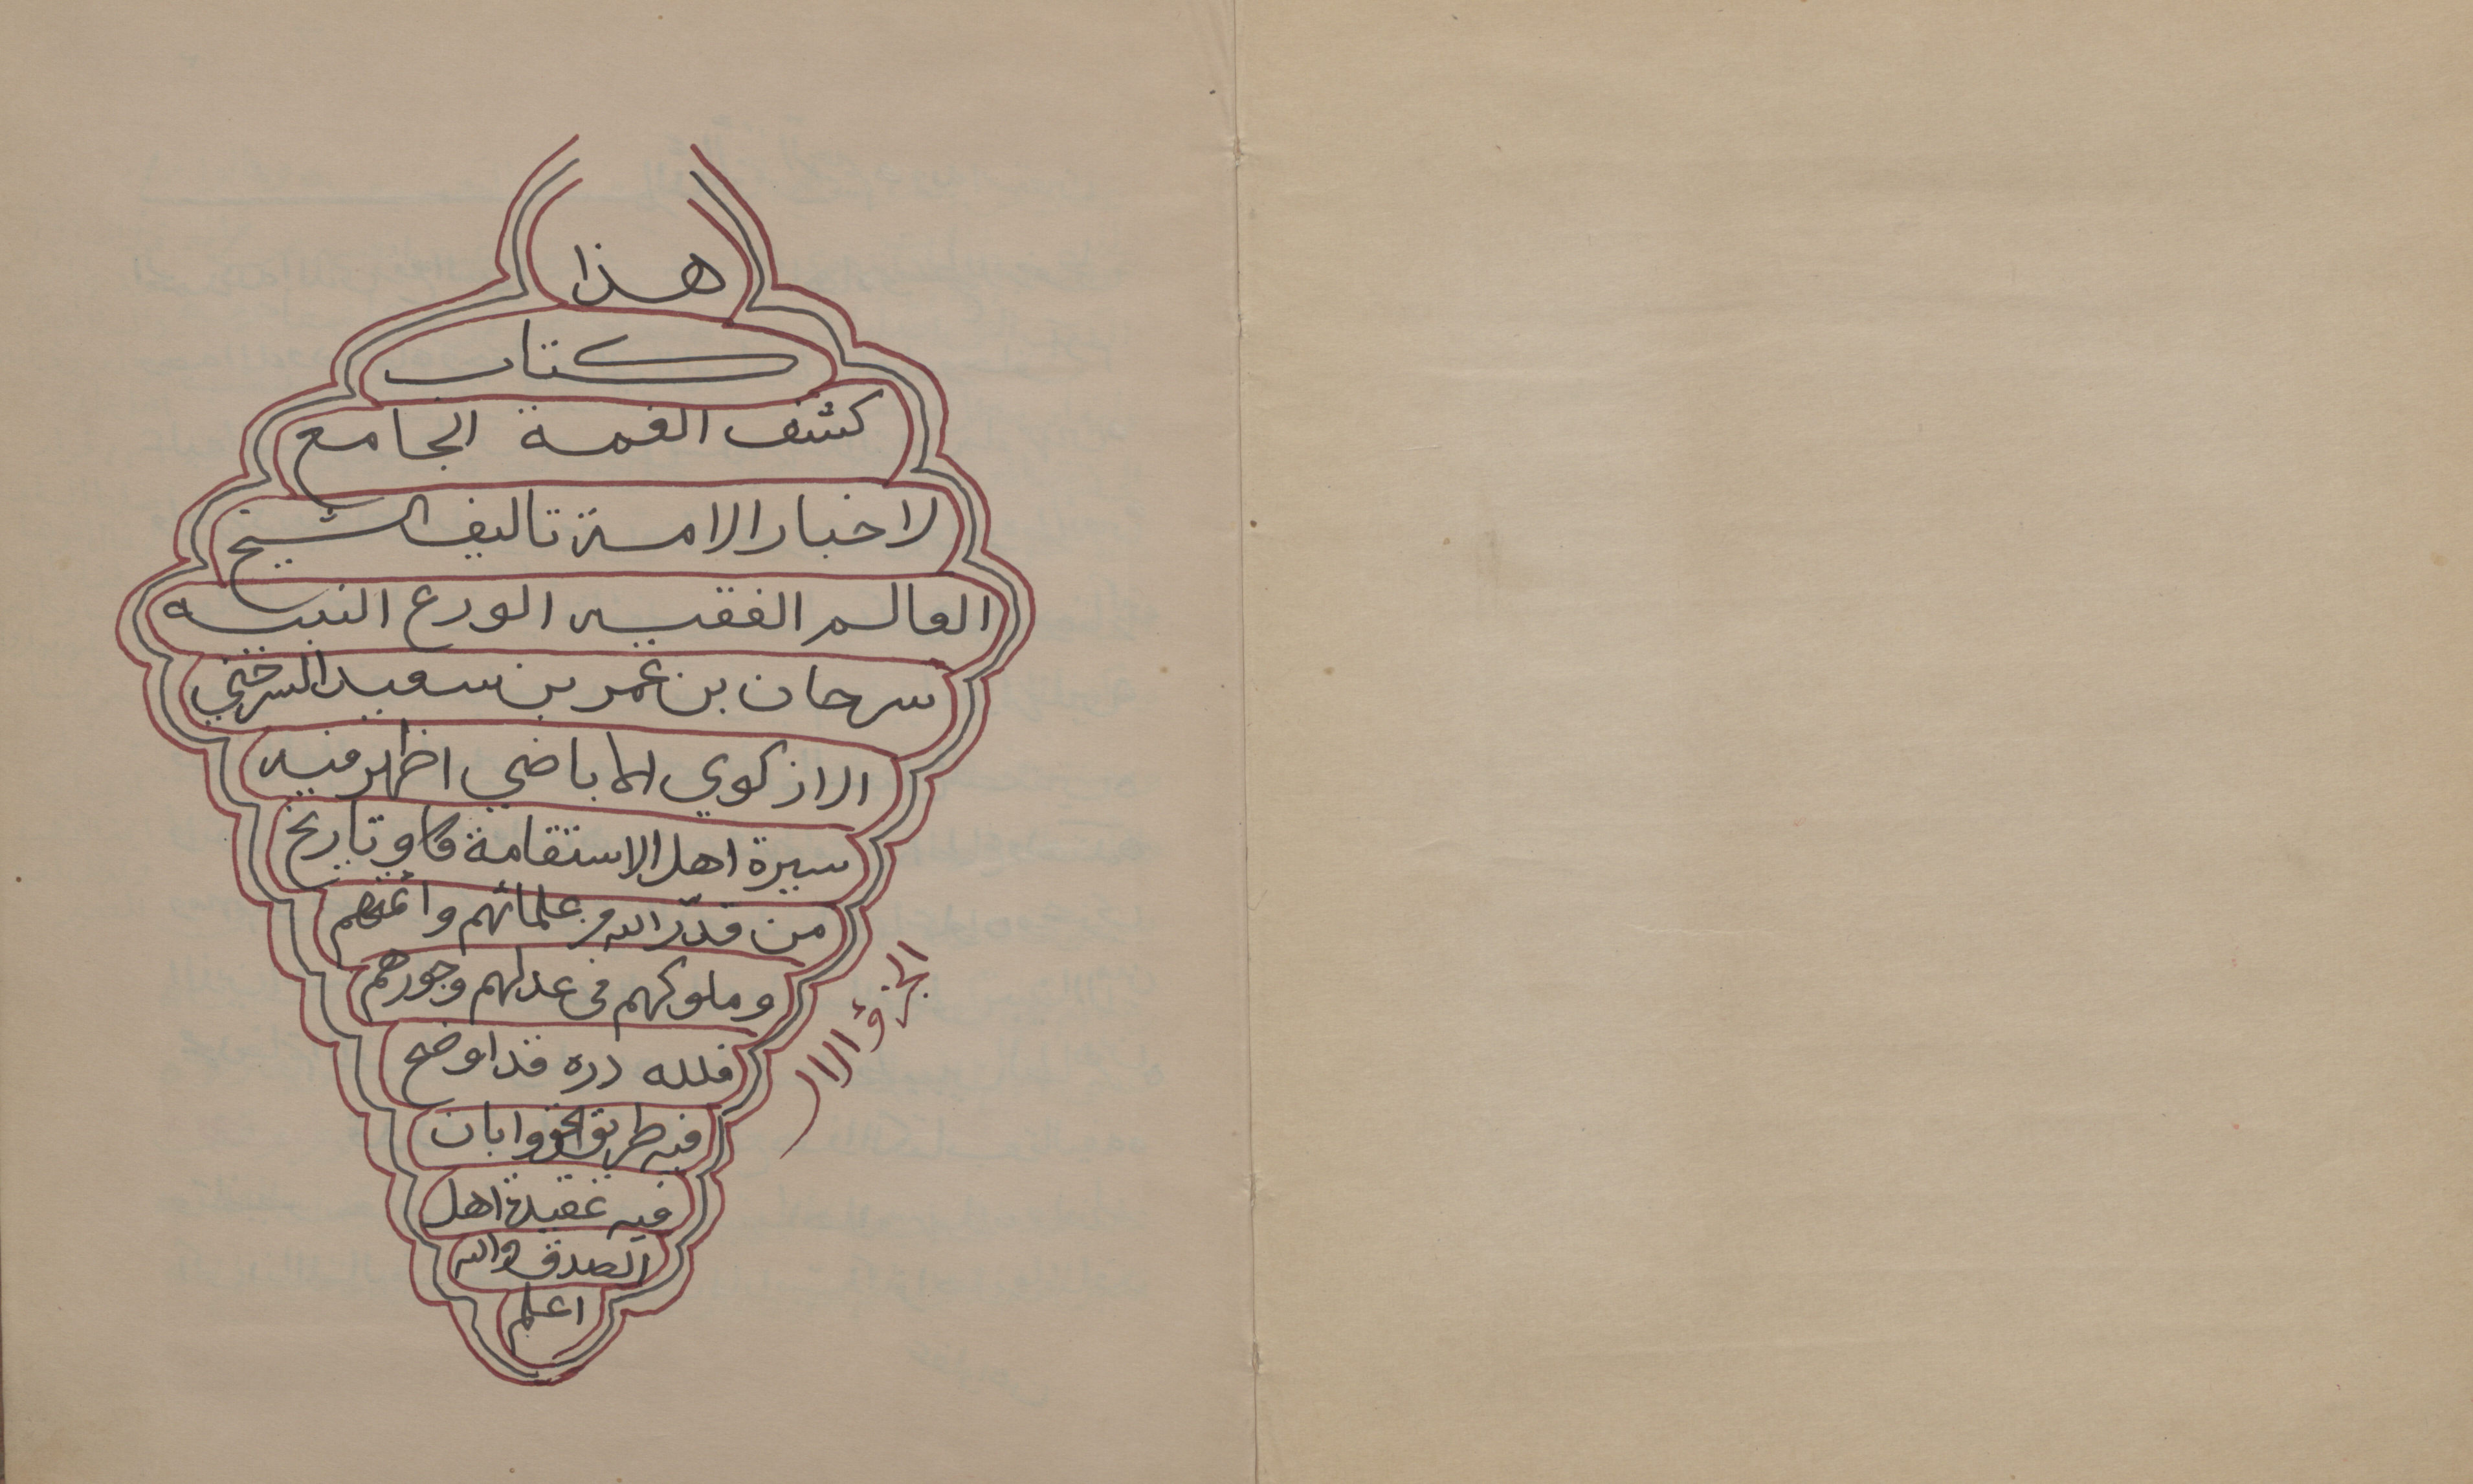 هذا
كتاب
كشف الغمة الجامع
لاخبار الامة تاليف الشيخ
العالم الفقيه الورع النبيه
سرحان بن عمر بن سعيد السرحني
الازكوي الاباضي اظهر فيه
سيرة اهل الاستقامة وتاريخ
من قدّر الله من علمائهم وائمتهم
وملوكهم في عدلهم وجورهم
فلله دره قد اوضح
فيه طريق الحق وابان
فيه عقيدة اهل
الصدق والله
اعلم
الجزؤ الاول